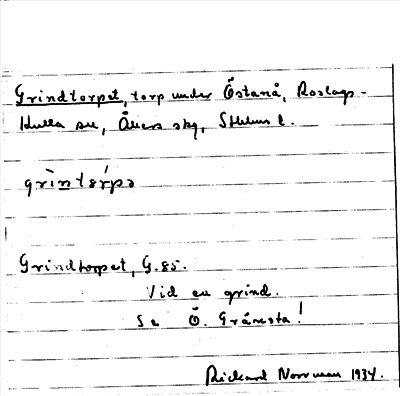 Grindtorpet, torp under Östanå, Roslags-
Kulla sn, Åkers skg, Sthlms l.
grìntɷrpə
Grindtorpet, G. 85.
Vid en grind.
Se Ö. Gränsta!
Rickard Norrman 1934.